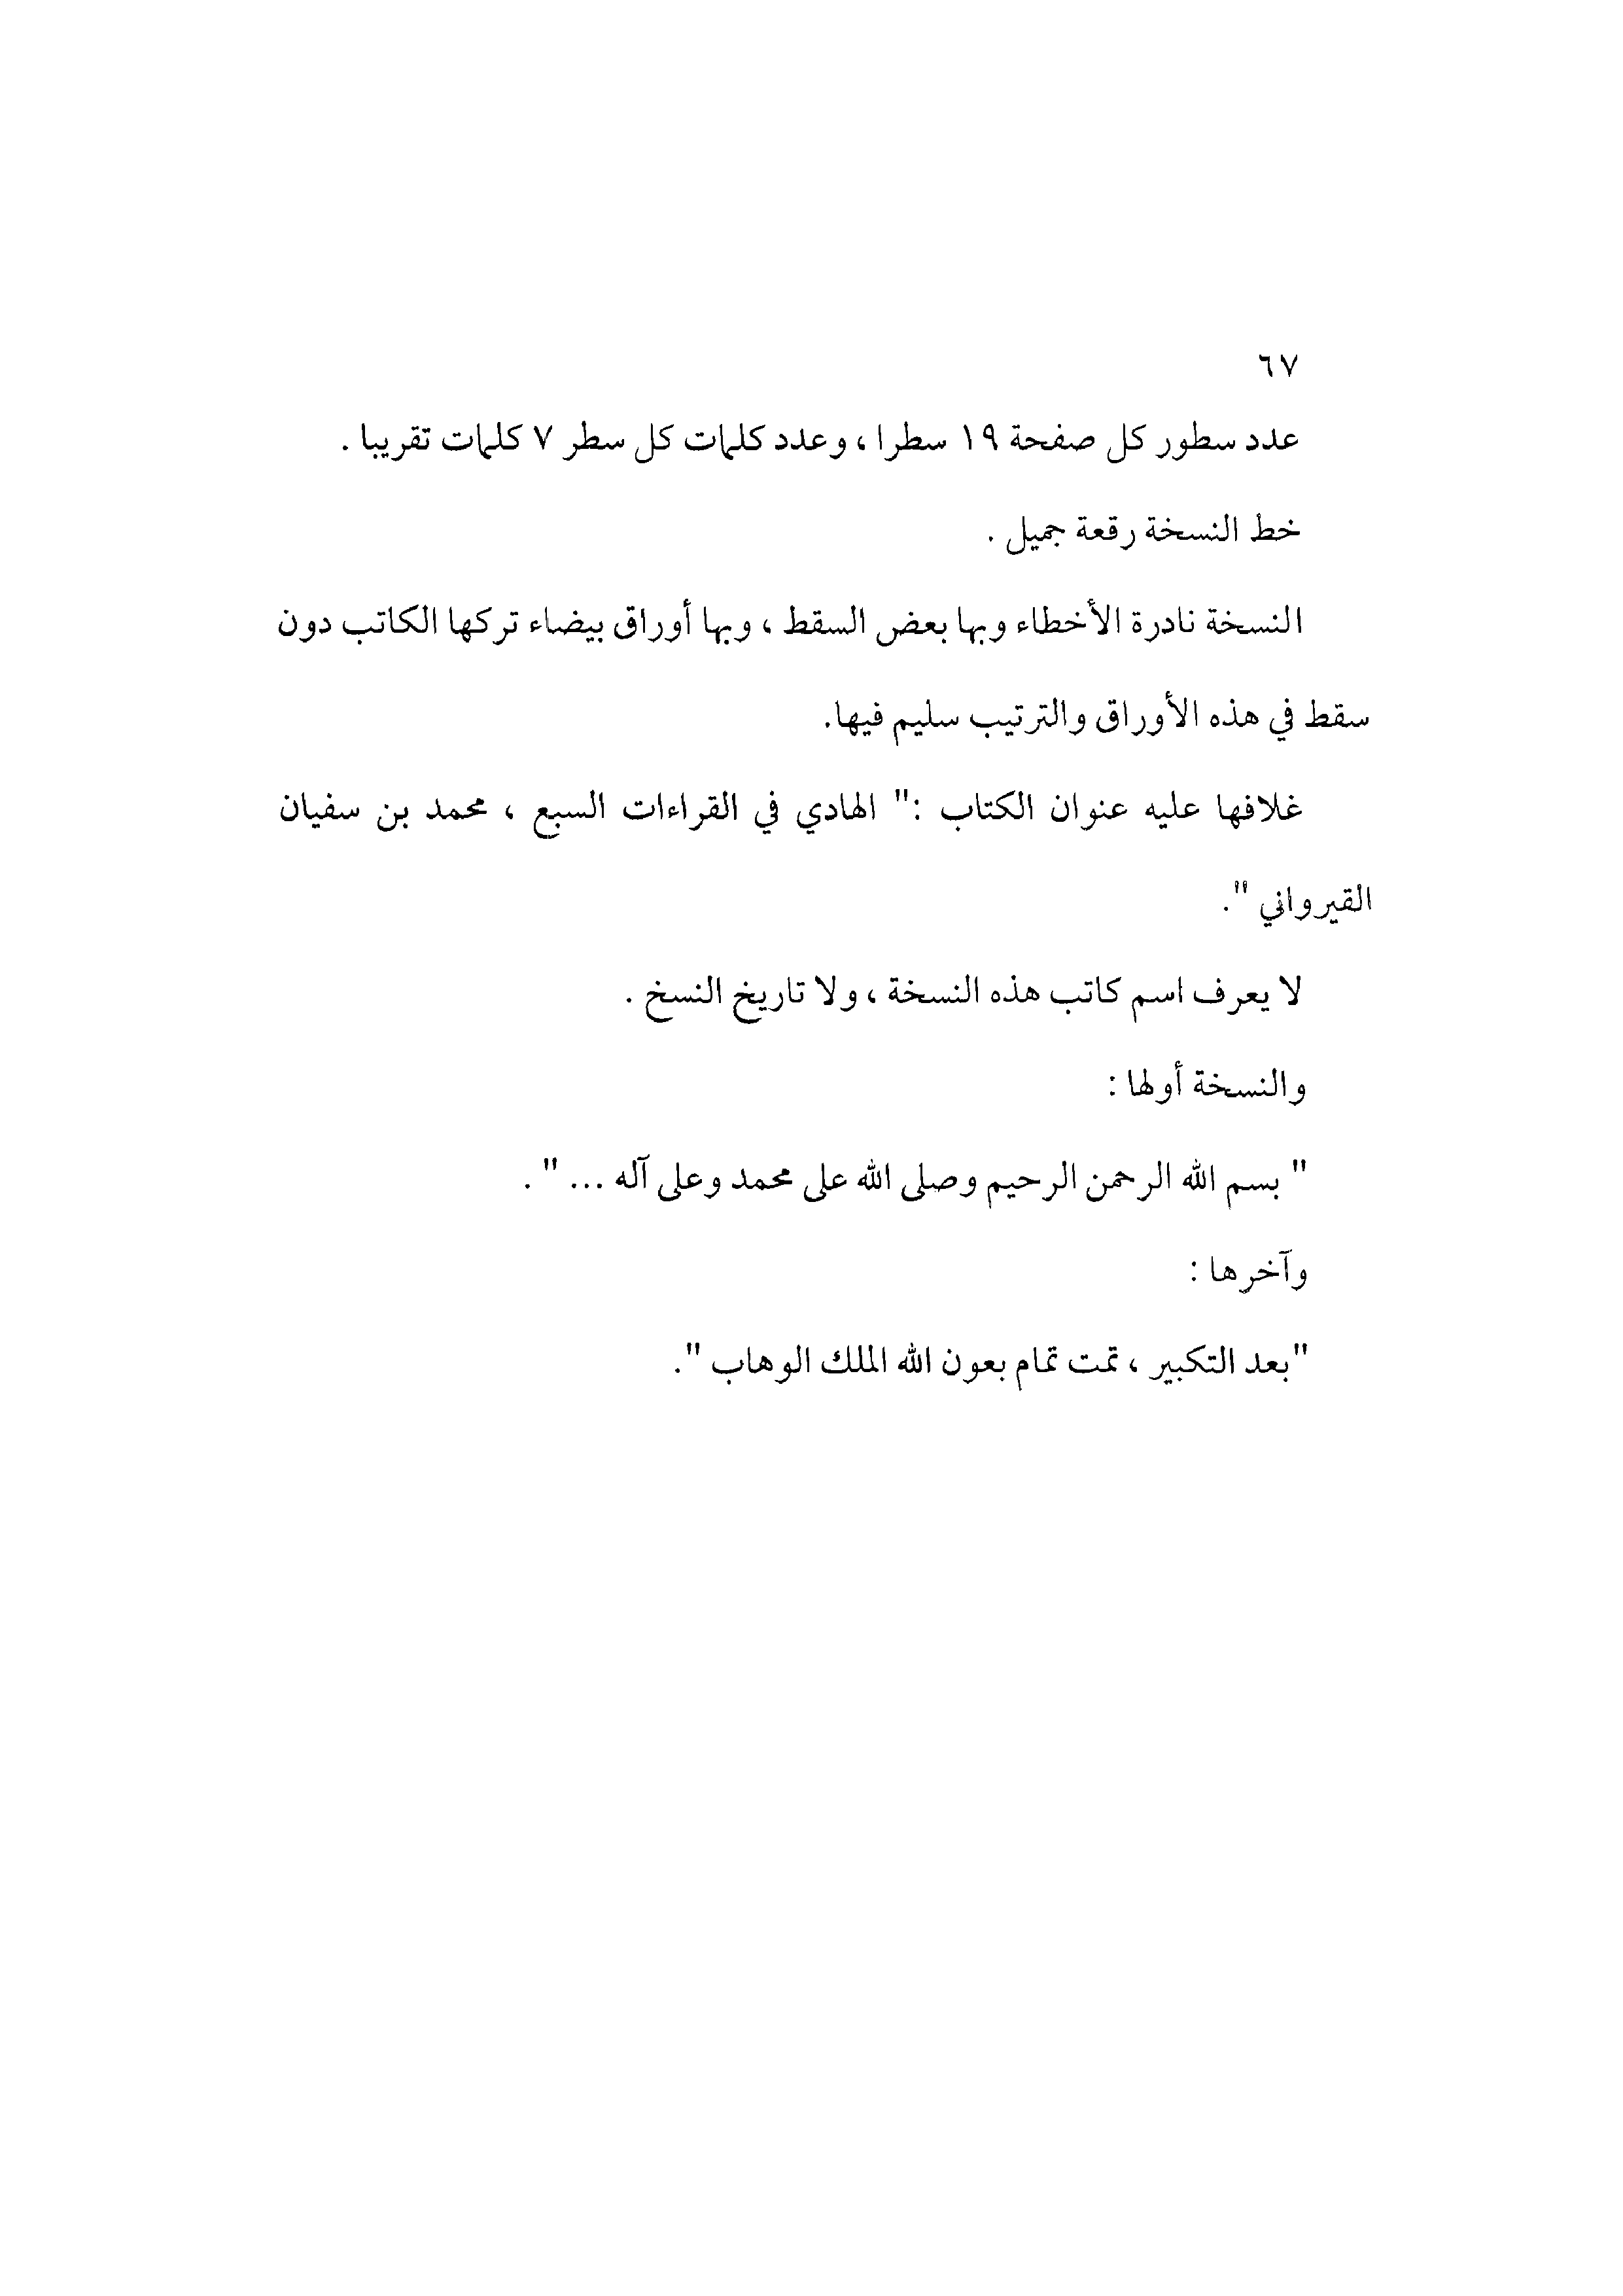 ٦٧
عدد سطور كل صفحة ١٩ سطرا ، وعدد كلمات كل سطر ٧ كلمات تقريبا .
خط النسخة رقعة جميل .
النسخة نادرة الأخطاء وبها بعض السقط ، وبها أوراق بيضاء تركها الكاتب دون
سقط في هذه الأوراق والترتيب سليم فيها.
غلافها عليه عنوان الكتاب :" الهادي في القراءات السبع ، محمد بن سفيان
القيرواني ".
لا يعرف اسم كاتب هذه النسخة ، ولا تاريخ النسخ .
والنسخة أولها :
" بسم الله الرحمن الرحيم وصلى الله على محمد وعلى آله ... " .
وآخرها :
"بعد التكبير ، تمت تمام بعون الله الملك الوهاب ".